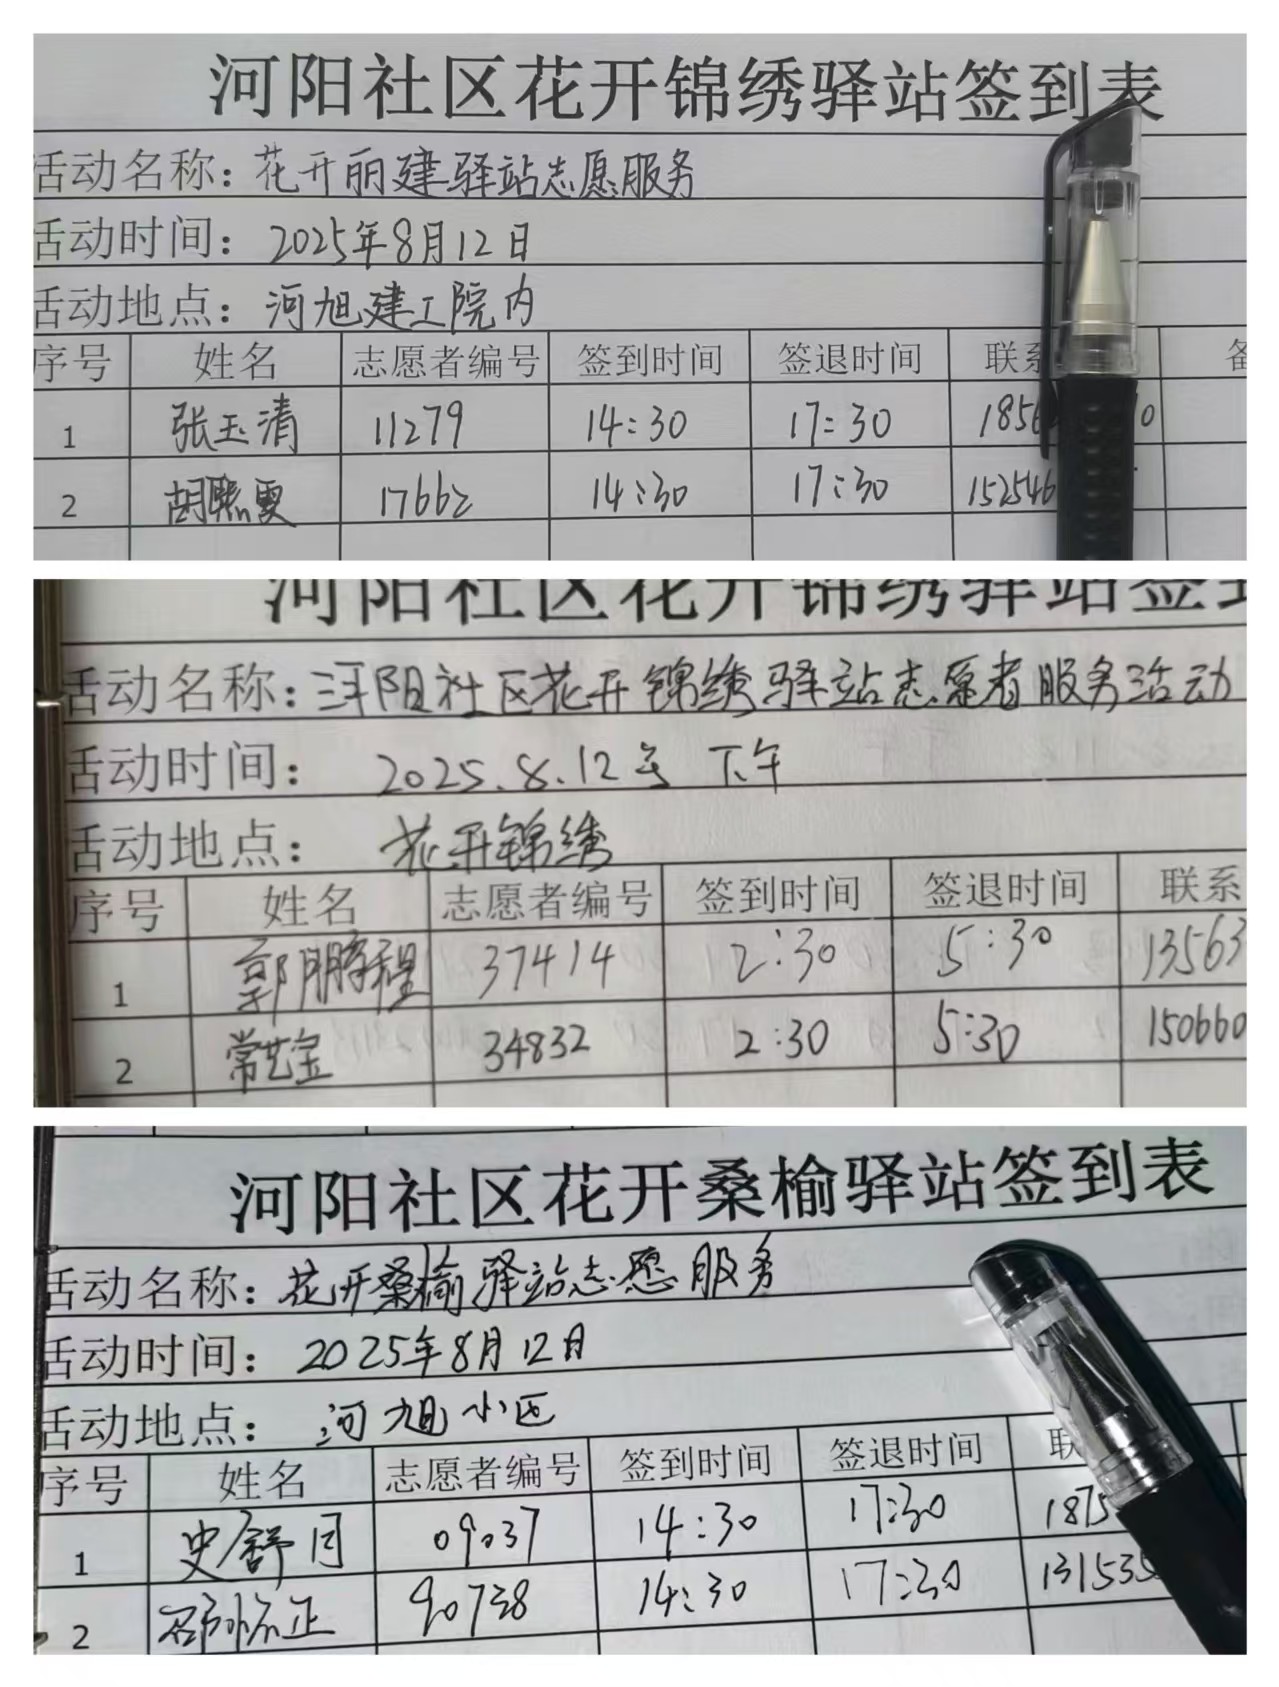 河阳社区花开锦绣驿站签到表
活动名称：花开丽建驿站志愿服务
活动时间：2025年8月12日
活动地点：河旭建工院内
序号 姓名 志愿者编号 签到时间 签退时间 联系 备
1 张玉清 11279 14:30 17:30 185 0
2 胡熙雯 17662 14:30 17:30 152546
河阳社区花开锦绣驿站签到
活动名称：河阳社区花开锦绣驿站志愿者服务活动
活动时间：2025.8.12号 下午
活动地点：花开锦绣
序号 姓名 志愿者编号 签到时间 签退时间 联系
1 郭鹏程 37414 2:30 5:30 13563
2 常艺宝 34832 2:30 5:30 150660
河阳社区花开桑榆驿站签到表
活动名称：花开桑榆驿站志愿服务
活动时间：2025年8月12日
活动地点：河旭小区
序号 姓名 志愿者编号 签到时间 签退时间 联
1 史舒月 09037 14:30 17:30 1875
2 90738 14:30 17:30 131535